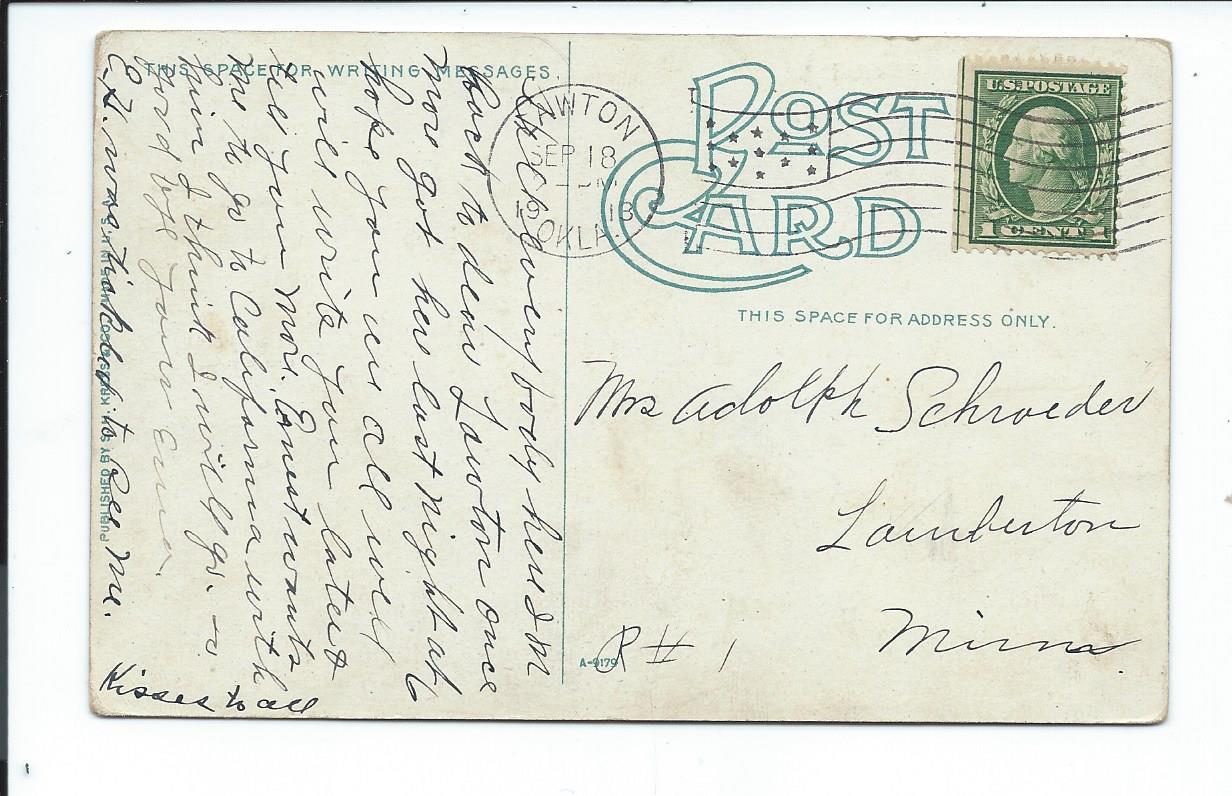 THIS SPACE FOR WRITING MESSAGES.
Well every body here I'm
back to dear Lawton once
more got here last night at 6
hope you are all well
will write you later
tell you more. Ernest wants
me to go to California with
him I think I will go.
good bye Yours Erma.
E.H. was tickled to see me.
Kisses to all
PUBLISHED BY S.H. KRESS & CO.
LAWTON
SEP 18
1918
OKLA.
POST CARD
U.S. POSTAGE
1 CENT 1
THIS SPACE FOR ADDRESS ONLY.
Mrs Adolph Schroeder
Lamberton
Minna.
R # 1
A-9179